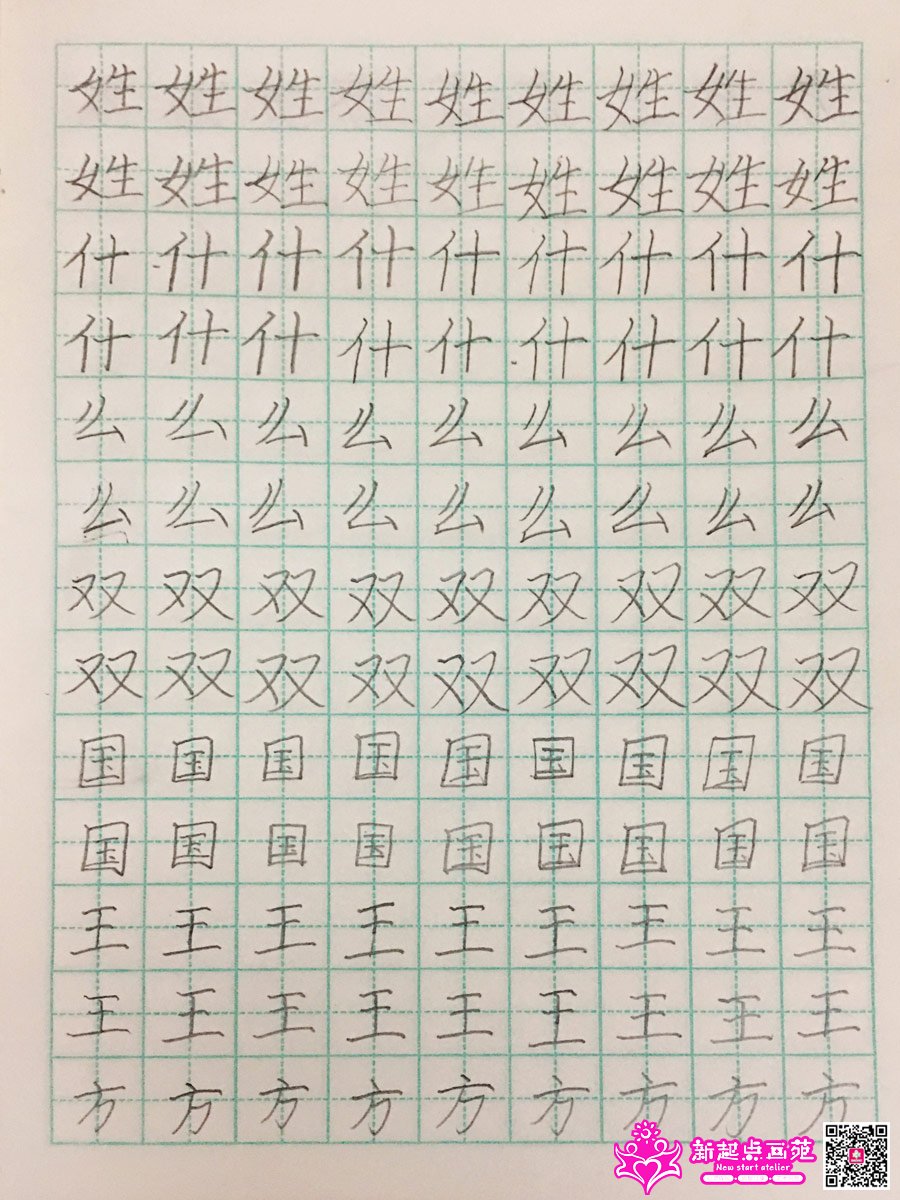 姓姓姓姓姓姓姓姓姓
姓姓姓姓姓姓姓姓姓
什什什什什什什什什
什什什什什什什什什
么么么么么么么么么
么么么么么么么么么
双双双双双双双双双
双双双双双双双双双
国国国国国国国国国
国国国国国国国国国
王王王王王王王王王
王王王王王王王王王
方方方方方方方方方
新起点画苑
New start atelier